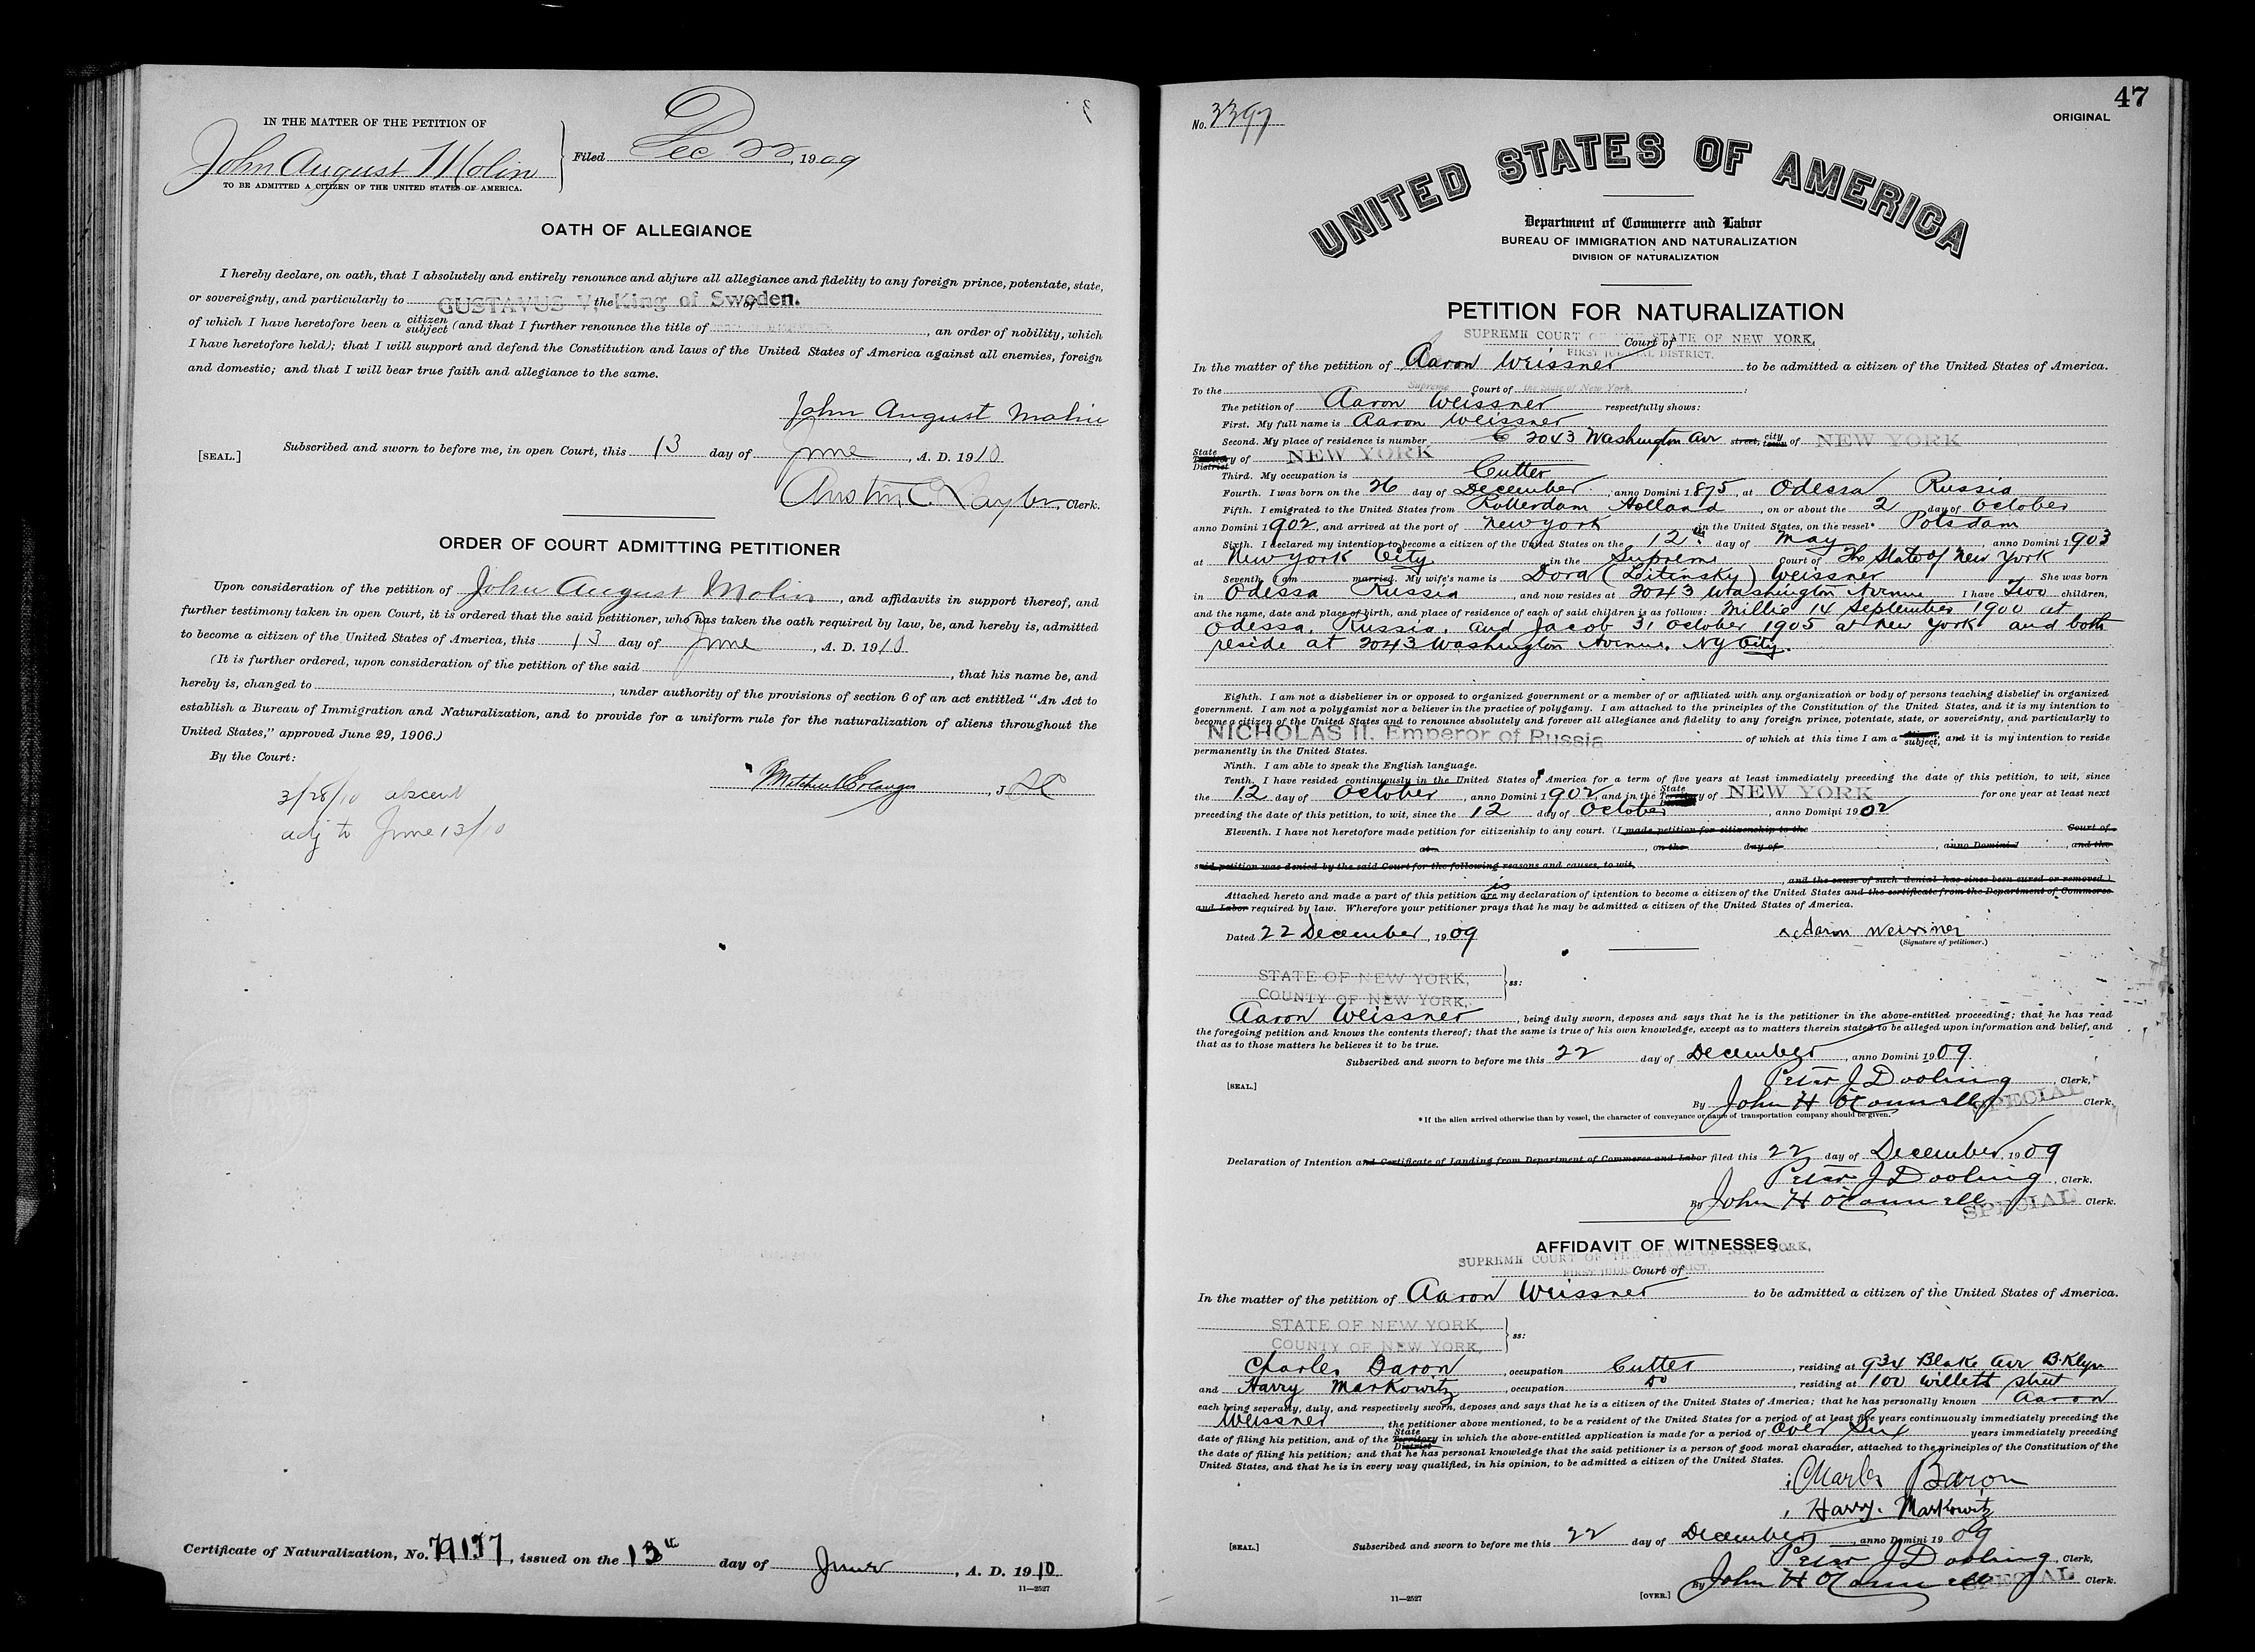 IN THE MATTER OF THE PETITION OF
John August Molin
TO BE ADMITTED A CITIZEN OF THE UNITED STATES OF AMERICA.
Filed Dec 22, 1909
OATH OF ALLEGIANCE
I hereby declare, on oath, that I absolutely and entirely renounce and abjure all allegiance and fidelity to any foreign prince, potentate, state,
or sovereignty, and particularly to GUSTAVUS V, the King of Sweden. of
of which I have heretofore been a citizen subject (and that I further renounce the title of , an order of nobility, which
I have heretofore held); that I will support and defend the Constitution and laws of the United States of America against all enemies, foreign
and domestic; and that I will bear true faith and allegiance to the same.
John August Molin
[SEAL.] Subscribed and sworn to before me, in open Court, this 13 day of June, A. D. 1910
Clerk.
ORDER OF COURT ADMITTING PETITIONER
Upon consideration of the petition of John August Molin, and affidavits in support thereof, and
further testimony taken in open Court, it is ordered that the said petitioner, who has taken the oath required by law, be, and hereby is, admitted
to become a citizen of the United States of America, this 13 day of June, A. D. 1910
(It is further ordered, upon consideration of the petition of the said , that his name be, and
hereby is, changed to , under authority of the provisions of section 6 of an act entitled "An Act to
establish a Bureau of Immigration and Naturalization, and to provide for a uniform rule for the naturalization of aliens throughout the
United States," approved June 29, 1906.)
By the Court:
Mitchell Erlanger, J
3/28/10 absent
adj to June 13/10
Certificate of Naturalization, No. 79137, issued on the 13th day of June, A. D. 1910
11—2527
47
No. 3397
ORIGINAL
UNITED STATES OF AMERICA
Department of Commerce and Labor
BUREAU OF IMMIGRATION AND NATURALIZATION
DIVISION OF NATURALIZATION
PETITION FOR NATURALIZATION
SUPREME COURT OF THE STATE OF NEW YORK,
Court of
FIRST JUDICIAL DISTRICT.
In the matter of the petition of Aaron Weissner to be admitted a citizen of the United States of America.
To the Supreme Court of the State of New York :
The petition of Aaron Weissner respectfully shows:
First. My full name is Aaron Weissner
Second. My place of residence is number 2043 Washington Av street, city town of NEW YORK
State Territory District of NEW YORK
Third. My occupation is Cutter
Fourth. I was born on the 26 day of December, anno Domini 1875, at Odessa Russia
Fifth. I emigrated to the United States from Rotterdam Holland, on or about the 2 day of October
anno Domini 1902, and arrived at the port of New York in the United States, on the vessel* Potsdam
Sixth. I declared my intention to become a citizen of the United States on the 12th day of May, anno Domini 1903
at New York City in the Supreme Court of The State of New York
Seventh. I am married. My wife's name is Dora (Litinsky) Weissner She was born
in Odessa Russia, and now resides at 2043 Washington Avenue I have Two children,
and the name, date and place of birth, and place of residence of each of said children is as follows: Millie 14 September 1900 at
Odessa, Russia, and Jacob 31 October 1905 at New York and both
reside at 2043 Washington Avenue, NY City.
Eighth. I am not a disbeliever in or opposed to organized government or a member of or affiliated with any organization or body of persons teaching disbelief in organized
government. I am not a polygamist nor a believer in the practice of polygamy. I am attached to the principles of the Constitution of the United States, and it is my intention to
become a citizen of the United States and to renounce absolutely and forever all allegiance and fidelity to any foreign prince, potentate, state, or sovereignty, and particularly to
NICHOLAS II, Emperor of Russia of which at this time I am a subject, and it is my intention to reside
permanently in the United States.
Ninth. I am able to speak the English language.
Tenth. I have resided continuously in the United States of America for a term of five years at least immediately preceding the date of this petition, to wit, since
the 12 day of October, anno Domini 1902, and in the State Territory of NEW YORK for one year at least next
preceding the date of this petition, to wit, since the 12 day of October, anno Domini 1902
Eleventh. I have not heretofore made petition for citizenship to any court. (I made petition for citizenship to the Court of
at , on the day of , anno Domini 1 , and the
said petition was denied by the said Court for the following reasons and causes, to wit,
, and the cause of such denial has since been cured or removed.)
Attached hereto and made a part of this petition are is my declaration of intention to become a citizen of the United States and the certificate from the Department of Commerce
and Labor required by law. Wherefore your petitioner prays that he may be admitted a citizen of the United States of America.
Dated 22 December, 1909
x Aaron Weissner
(Signature of petitioner.)
STATE OF NEW YORK,
COUNTY OF NEW YORK, ss:
Aaron Weissner, being duly sworn, deposes and says that he is the petitioner in the above-entitled proceeding; that he has read
the foregoing petition and knows the contents thereof; that the same is true of his own knowledge, except as to matters therein stated to be alleged upon information and belief, and
that as to those matters he believes it to be true.
Subscribed and sworn to before me this 22 day of December, anno Domini 1909
[SEAL.] Peter J Dooling, Clerk,
By John H O'Connell SPECIAL Clerk.
*If the alien arrived otherwise than by vessel, the character of conveyance or name of transportation company should be given.
Declaration of Intention and Certificate of Landing from Department of Commerce and Labor filed this 22 day of December, 1909
Peter J Dooling, Clerk.
By John H O'Connell SPECIAL Clerk.
AFFIDAVIT OF WITNESSES
SUPREME COURT OF THE STATE OF NEW YORK,
Court of
FIRST JUDICIAL DISTRICT.
In the matter of the petition of Aaron Weissner to be admitted a citizen of the United States of America.
STATE OF NEW YORK,
COUNTY OF NEW YORK, ss:
Charles Baron, occupation Cutter, residing at 934 Blake Av B.Klyn
and Harry Markowitz, occupation do, residing at 100 Willett Street
each being severally, duly, and respectively sworn, deposes and says that he is a citizen of the United States of America; that he has personally known Aaron
Weissner, the petitioner above mentioned, to be a resident of the United States for a period of at least five years continuously immediately preceding the
date of filing his petition, and of the State Territory District in which the above-entitled application is made for a period of over Six years immediately preceding
the date of filing his petition; and that he has personal knowledge that the said petitioner is a person of good moral character, attached to the principles of the Constitution of the
United States, and that he is in every way qualified, in his opinion, to be admitted a citizen of the United States.
Charles Baron
Harry Markowitz
[SEAL.] Subscribed and sworn to before me this 22 day of December, anno Domini 1909
Peter J Dooling, Clerk,
By John H O'Connell SPECIAL Clerk.
11—2527
[OVER.]